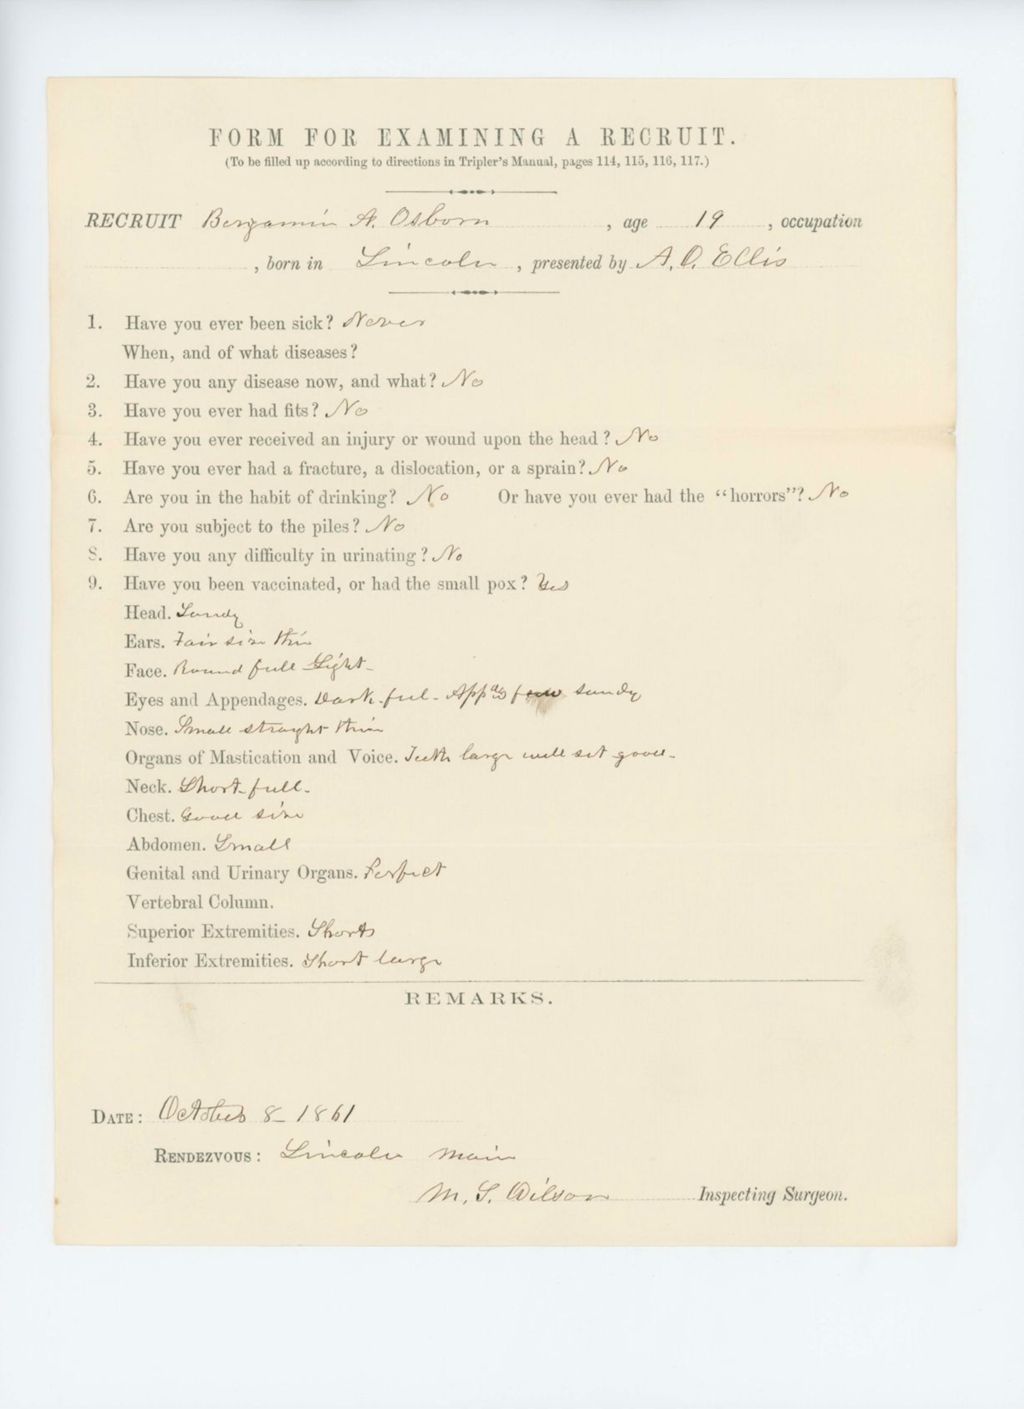 FORM FOR EXAMINING A RECRUIT.
(To be filled up according to directions in Tripler's Manual, pages 114, 115, 116, 117.)
RECRUIT Benjamin A. Osborn , age 19 , occupation
, born in Lincoln , presented by A. P. Ellis
1. Have you ever been sick? Never
When, and of what diseases?
2. Have you any disease now, and what? No
3. Have you ever had fits? No
4. Have you ever received an injury or wound upon the head? No
5. Have you ever had a fracture, a dislocation, or a sprain? No
6. Are you in the habit of drinking? No Or have you ever had the "horrors"? No
7. Are you subject to the piles? No
8. Have you any difficulty in urinating? No
9. Have you been vaccinated, or had the small pox? Yes
Head. Sandy
Ears. Fair size thin
Face. Round full Light
Eyes and Appendages. Dark full - App'gs few sandy
Nose. Small straight thin
Organs of Mastication and Voice. Teeth large well set good -
Neck. Short full -
Chest. Good size
Abdomen. Small
Genital and Urinary Organs. Perfect
Vertebral Column.
Superior Extremities. Short
Inferior Extremities. Short large
REMARKS.
DATE: October 8 - 1861
RENDEZVOUS: Lincoln Main
M. S. Wilson Inspecting Surgeon.